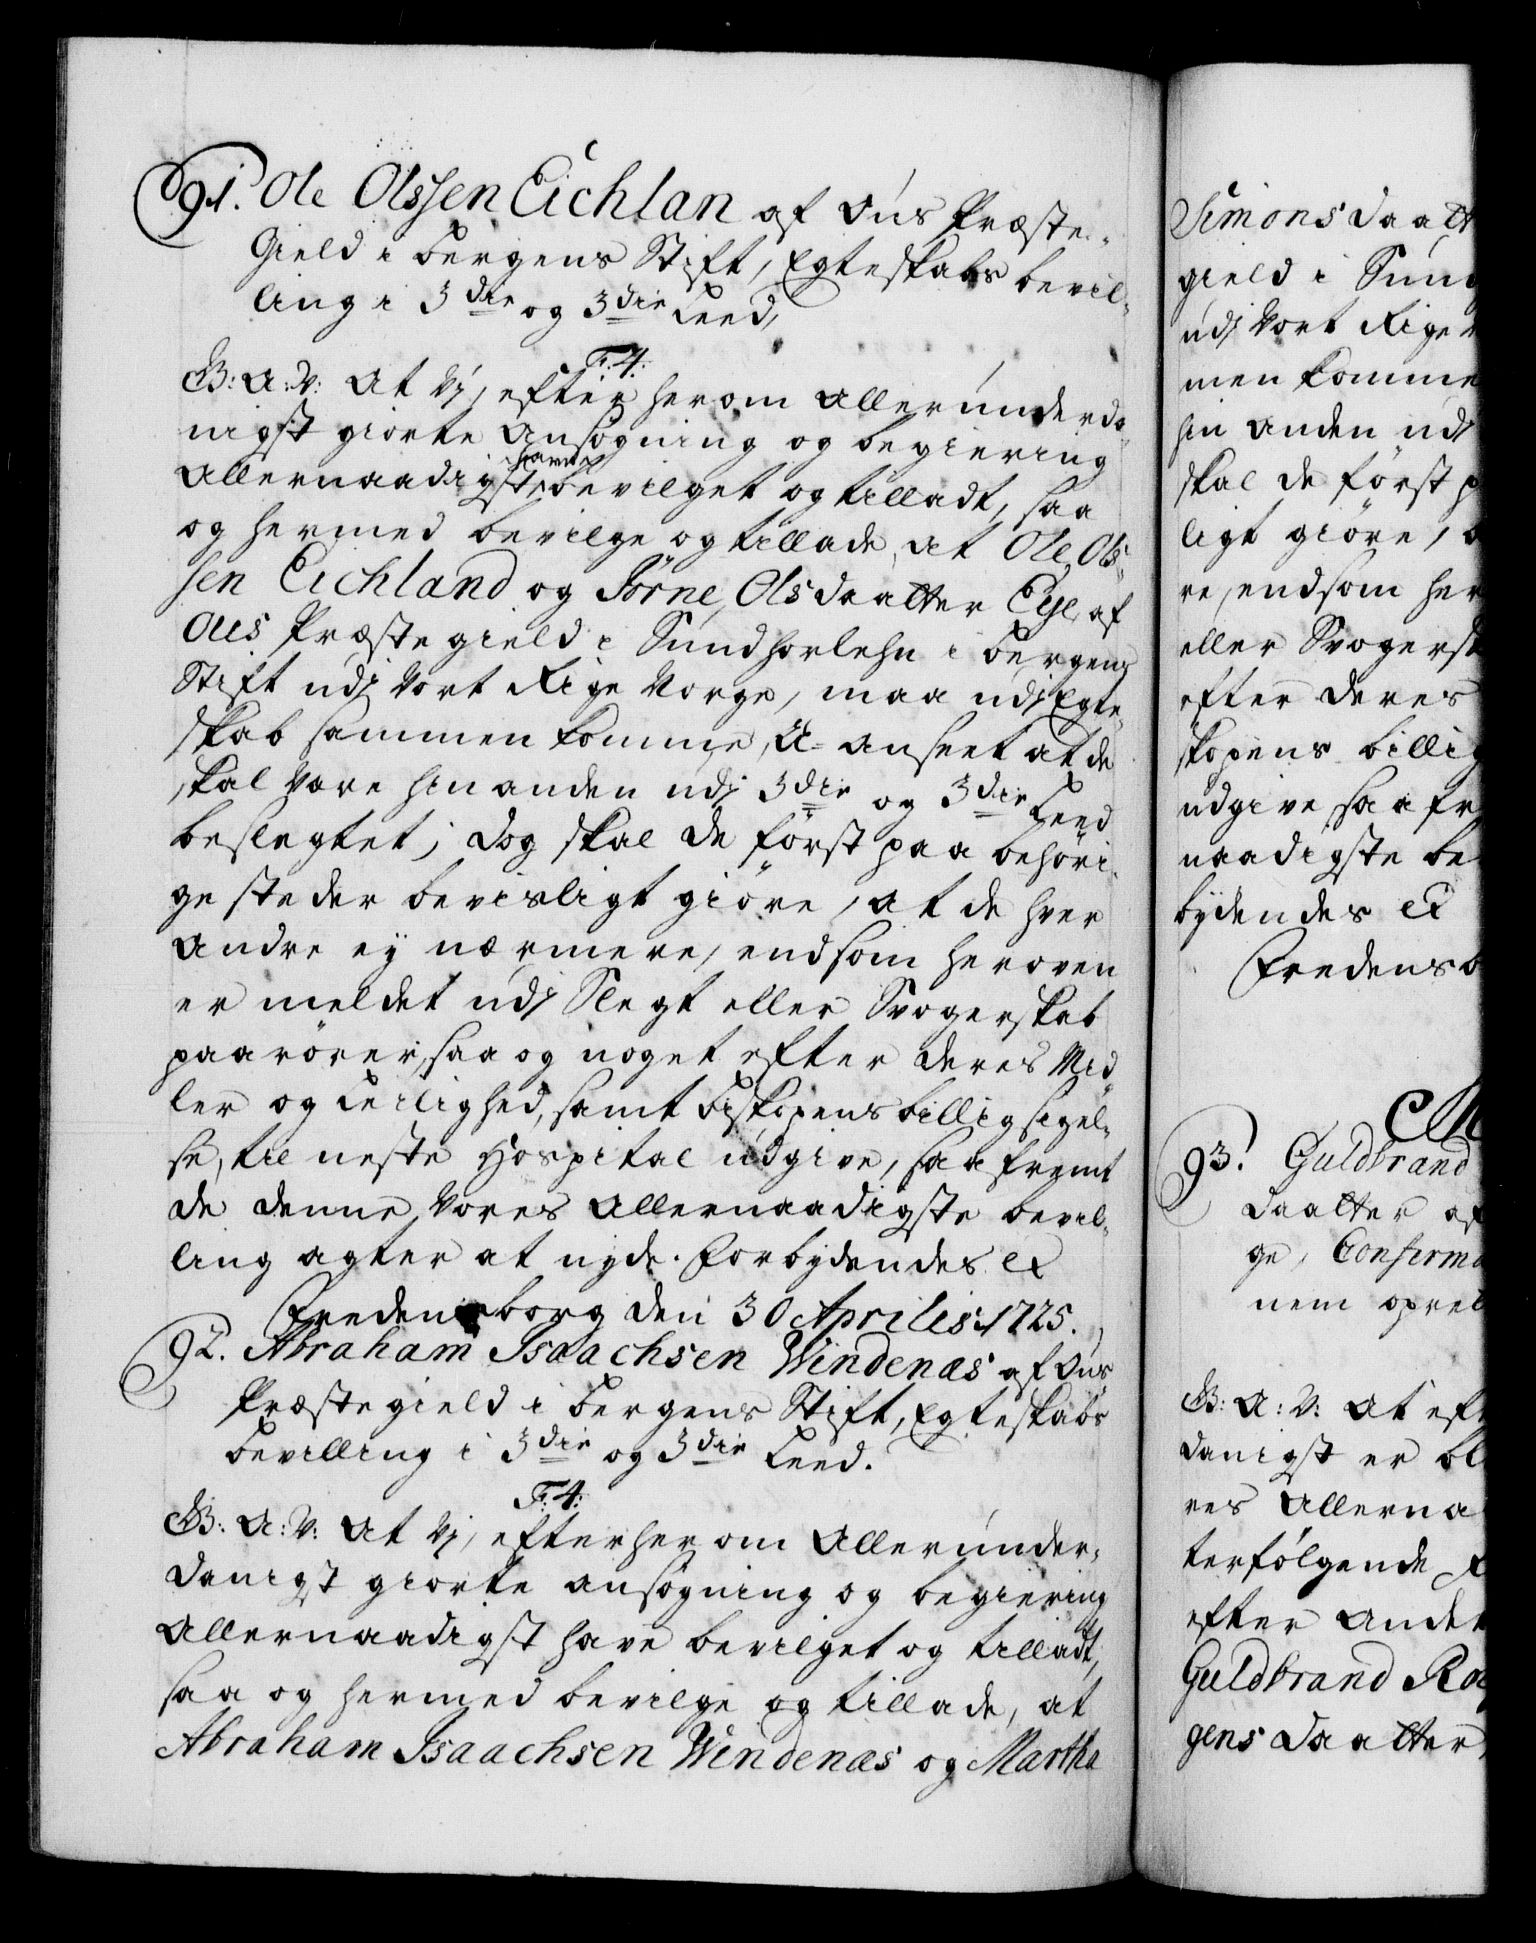 91. Ole Olssen Eichlan af Ous Præste-
Gield i Bergens Stift, Egteskabs bevil-
ling i 3die og 3die Leed,
F:4:
G: A: V: At Vi, efter herom allerunderda-
nigst giorte Ansøgning og begiering
Allernaadigst have bevilget og tilladt, saa
og hermed bevilge og tillade, at Ole Ols-
sen Eichland og Jörne Olsdaatter Eye, af
Ous Præstegield i Sundhorlehn i Bergens
Stift udj Vort Rige Norge, maa udj Egte-
skab sammen komme, U-anseet at de
skal være hinanden udj 3die og 3die Leed
beslegtet; dog skal de först paa behöri-
ge steder bevisligt giöre, at de hver
andre ey nærmere, end som heroven
er meldet udj Slegt eller Svogerskab
paarörer, saa og noget efter deres Mid-
ler og Leilighed, samt Biskopens billig sigel-
se, til neste Hospital udgive, saafremt
de denne Vores Allernaadigste bevil-
ling agter at nyde. Forbydendes &
Fredensborg den 30 Aprilis: 1725.
92. Abraham Isaachsen Windenæs af Ous
Præstegield i Bergens Stift, Egteskabs
bevilling i 3die og 3die Leed.
F: 4:
G: A: V: At Vj, efter herom Allerunder-
danigst giorte ansøgning og begiering
Allernaadigst have bevilget og tilladt,
saa og hermed bevilge og tillade, at
Abraham Isaachsen Windenæs og Martha
Simonsdaatt
gield i Sun
udj Vort Rige
men komme
hin anden udj
skal de först p
ligt giöre,
re, end som her
eller Svogersk
efter deres
skopens billig
udgive, saa fr
naadigste be
bydendes &
Fredensb
93. Guldbrand
daatter af
ge, Confirma
nem opret
G: A: V: At eft
danigst er bl
res Allerna
terfölgende
efter andet
Guldbrand Ro
gens daatter